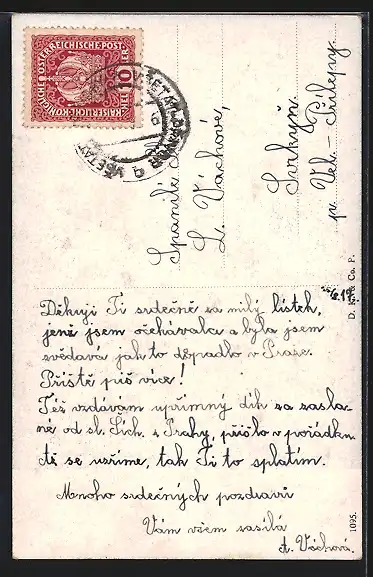 KAISERLICHE KÖNIGLICHE ÖSTERREICHISCHE POST
HELLER 10 HELLER
VŠETATY
Spanilé Sl.
L. Váchové,
Svrkyň
p. Vel.-Přílepy.
Děkuji Ti srdečně za milý lístek,
jenž jsem očekávala a byla jsem
zvědavá jak to dopadlo v Praze.
Příště piš více!
Též vzdávám upřímný dík za zasla-
né od sl. Sich. z Prahy, přišlo v pořádku
až se uzříme, tak Ti to splatím.
Mnoho srdečných pozdravů
Vám všem zasílá
A. Váchová.
D. K. & Co. P.
1095.